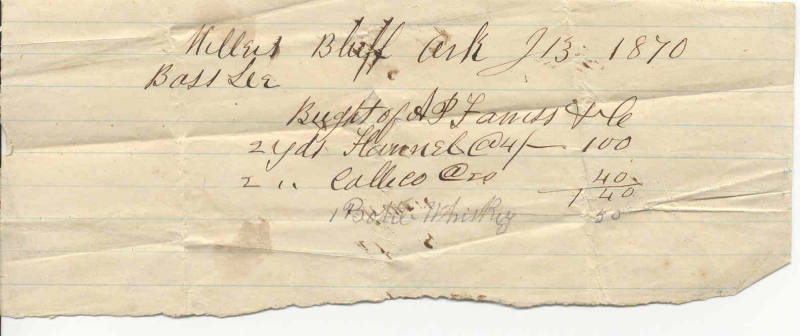 Millers Bluff Ark J 13 1870
Bass Lee
Bught of A P Farriss & Co
2 yds Flannel @ 4/– 100
2 " Callico @ 20 40
1 40
1 Bottle Whiskey 50